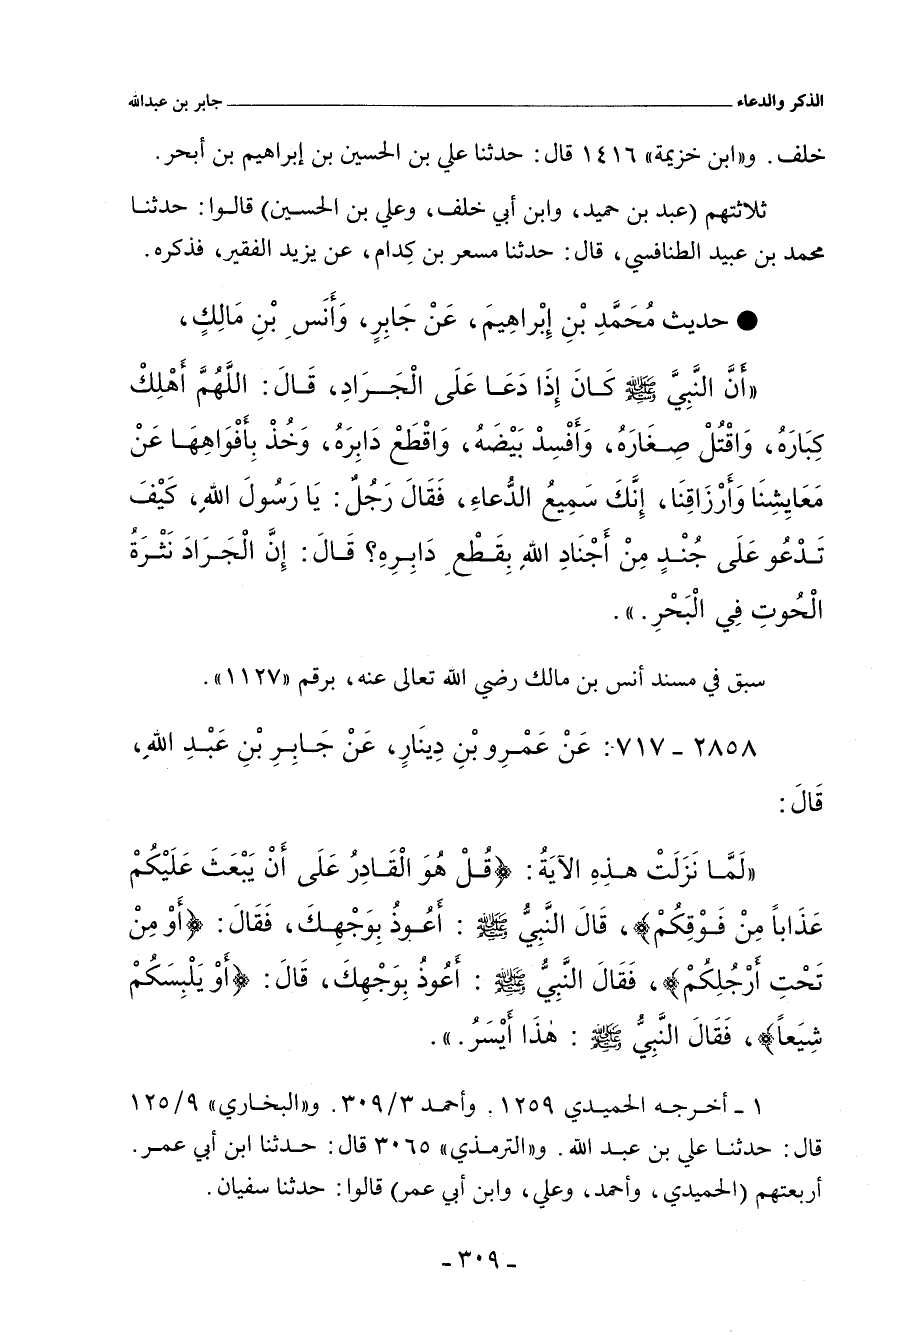 الذكر والدعاء ــــــــــــــــــــ جابر بن عبدالله
خلف. و«ابن خزيمة» ١٤١٦ قال: حدثنا علي بن الحسين بن إبراهيم بن أبحر.
ثلاثتهم (عبد بن حميد، وابن أبي خلف، وعلي بن الحسين) قالوا: حدثنا
محمد بن عبيد الطنافسي، قال: حدثنا مسعر بن كِدام، عن يزيد الفقير، فذكره.
● حديث مُحَمَّدِ بْنِ إِبْراهِيمَ، عَنْ جَابِرٍ، وَأَنَسِ بْنِ مَالِكٍ،
«أَنَّ النَّبِيَّ ﷺ كَانَ إِذَا دَعَا عَلَى الْجَرَادِ، قَالَ: اللَّهُمَّ أَهْلِكْ
كِبَارَهُ، وَاقْتُلْ صِغَارَهُ، وَأَفْسِدْ بَيْضَهُ، وَاقْطَعْ دَابِرَهُ، وَخُذْ بِأَفْوَاهِهَا عَنْ
مَعَايِشِنَا وَأَرْزَاقِنَا، إِنَّكَ سَمِيعُ الدُّعاءِ، فَقَالَ رَجُلٌ: يَا رَسُولَ اللهِ، كَيْفَ
تَدْعُو عَلَى جُنْدٍ مِنْ أَجْنَادِ اللهِ بِقَطْعِ دَابِرِهِ؟ قَالَ: إِنَّ الْجَرَادَ نَثْرَةُ
الْحُوتِ فِي الْبَحْرِ.».
سبق في مسند أنس بن مالك رضي الله تعالى عنه، برقم «١١٢٧».
٢٨٥٨ - ٧١٧: عَنْ عَمْرِو بْنِ دِينَارٍ، عَنْ جَابِرِ بْنِ عَبْدِ اللهِ،
قَالَ:
«لَمَّا نَزَلَتْ هذِهِ الآيَةُ: ﴿قُلْ هُوَ الْقَادِرُ عَلَى أَنْ يَبْعَثَ عَلَيْكُمْ
عَذَاباً مِنْ فَوْقِكُمْ﴾، قَالَ النَّبِيُّ ﷺ: أَعُوذُ بِوَجْهِكَ، فَقَالَ: ﴿أَوْ مِنْ
تَحْتِ أَرْجُلِكُمْ﴾، فَقَالَ النَّبِيُّ ﷺ: أَعُوذُ بِوَجْهِكَ، قَالَ: ﴿أَوْ يَلْبِسَكُمْ
شِيَعاً﴾، فَقَالَ النَّبِيُّ ﷺ: هٰذَا أَيْسَرُ.».
١ - أخرجه الحميدي ١٢٥٩. وأحمد ٣/٣٠٩. و«البخاري» ٩/١٢٥
قال: حدثنا علي بن عبد الله. و«الترمذي» ٣٠٦٥ قال: حدثنا ابن أبي عمر.
أربعتهم (الحميدي، وأحمد، وعلي، وابن أبي عمر) قالوا: حدثنا سفيان.
- ٣٠٩ -